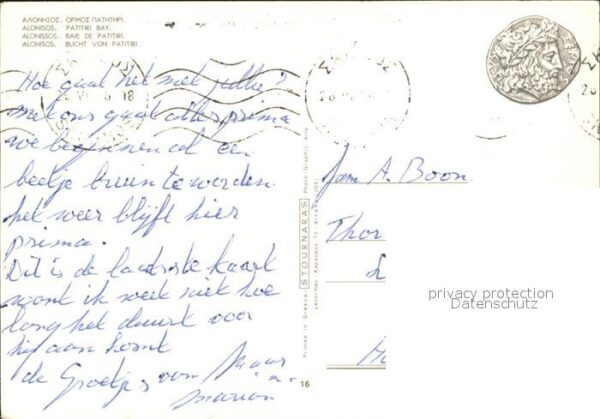 ΑΛΟΝΝΗΣΟΣ. ΟΡΜΟΣ ΠΑΤΗΤΗΡΙ.
ALONISOS. PATITIRI BAY.
ALONISSOS. BAIE DE PATITIRI.
ALONISOS. BUCHT VON PATITIRI.
Hoe gaat het met jullie?
met ons gaat alles prima
we beginnen al een
beetje bruin te worden.
het weer blijft hier
prima.
Dit is de laatste kaart
want ik weet niet hoe
lang het duurt voor
hij aan komt
de Groetjes van
Marian
Fam A. Boon
Thor
Printed in Greece STOURNARAS Photo-Graphic Arts
16
privacy protection
Datenschutz